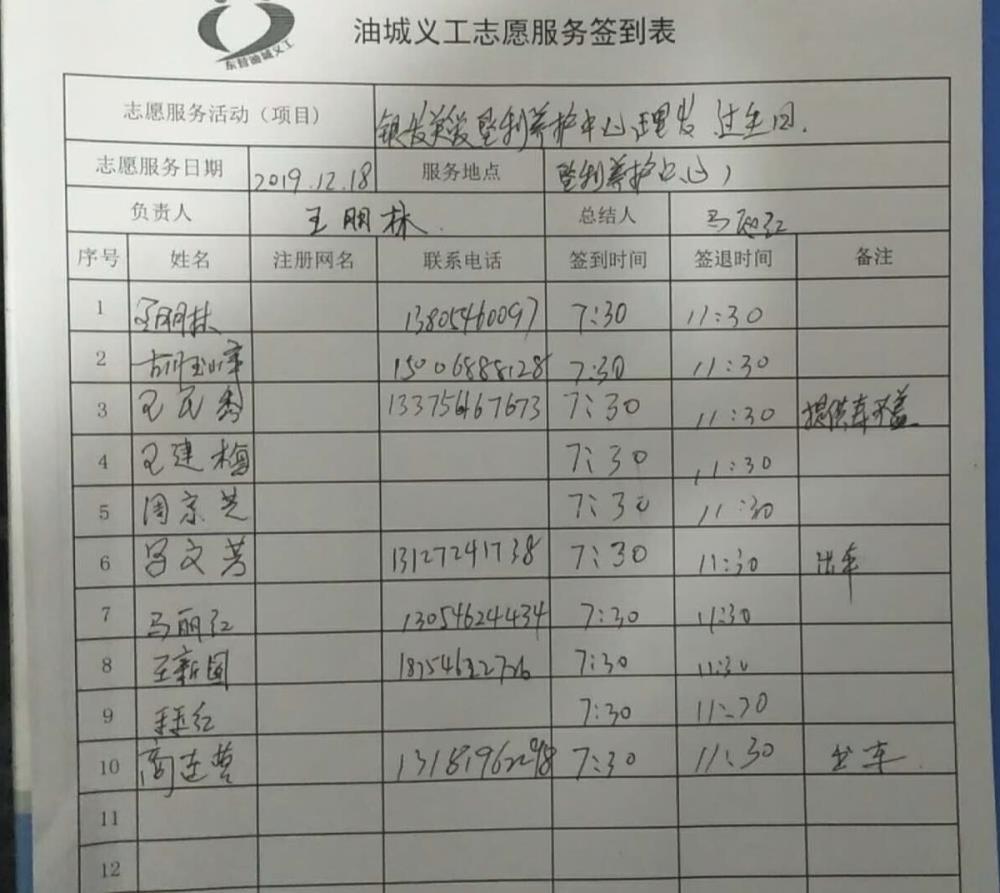 东营油城义工
油城义工志愿服务签到表
志愿服务活动（项目） 银发关爱垦利养护中心理发 过生日.
志愿服务日期 2019.12.18 服务地点 垦利养护中心
负责人 王朋林 总结人 马丽红
序号 姓名 注册网名 联系电话 签到时间 签退时间 备注
1 王朋林 13805460097 7:30 11:30
2 15006888128 7:30 11:30
3 王民秀 13375467673 7:30 11:30 提供车
4 王建梅 7:30 11:30
5 周宗芝 7:30 11:30
6 吕文芳 13127241738 7:30 11:30 出车
7 马丽红 13054624434 7:30 11:30
8 王新国 7:30 11:30
9 7:30 11:30
10 商连营 7:30 11:30 出车
11
12